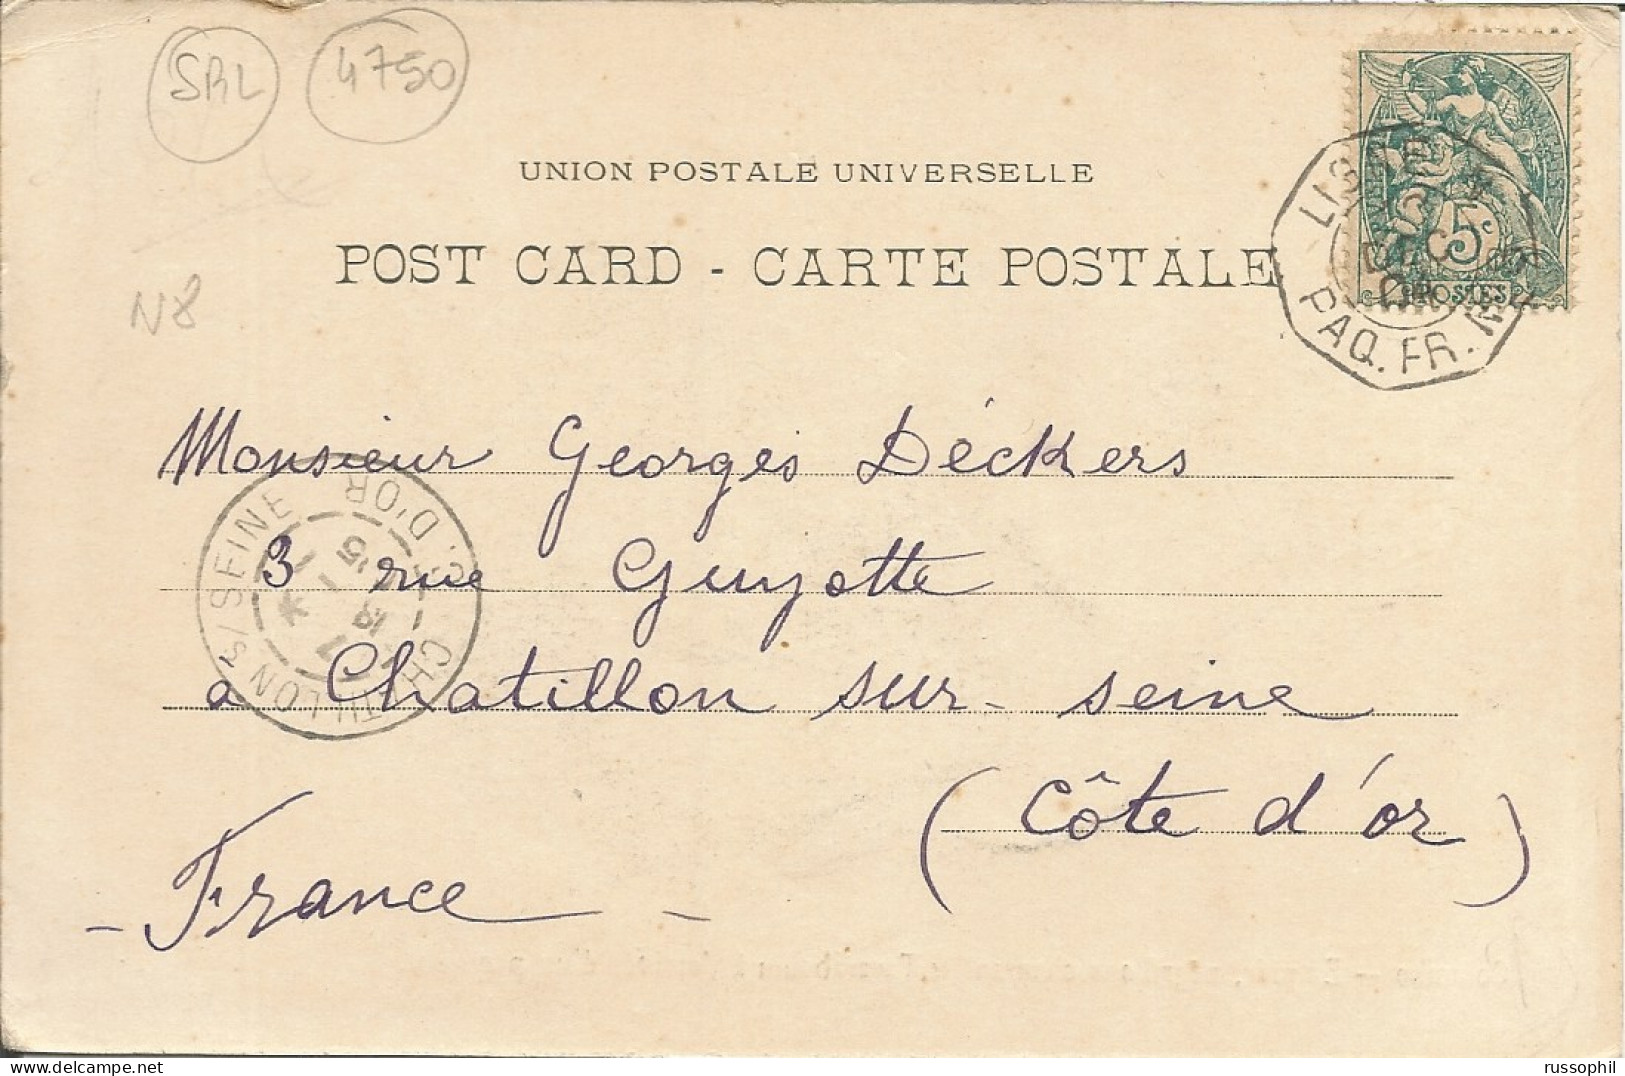 SRL 4750
UNION POSTALE UNIVERSELLE
POST CARD - CARTE POSTALE
5c
POSTES
LIGNE
DEC
PAQ. FR.
N8
Monsieur Georges Déckers
3 rue Guyotte
à Chatillon sur-seine
(Côte d'or)
- France -
CHATILLON S/SEINE
D'OR
russophil